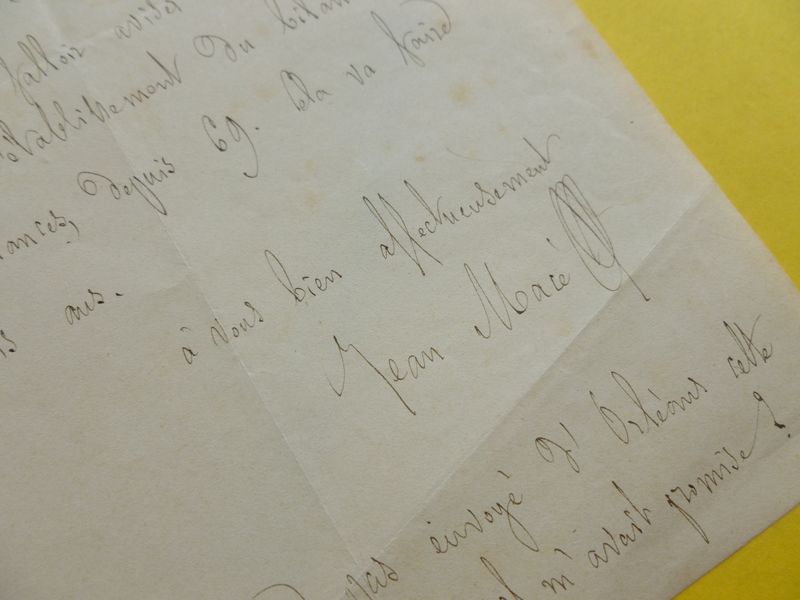 falloir aviser
établissement du bilan
ances, depuis 69. Cela va faire
s ans.
à vous bien affectueusement
Jean Macé
pas envoyé d'Orléans cette
m'avait promise?